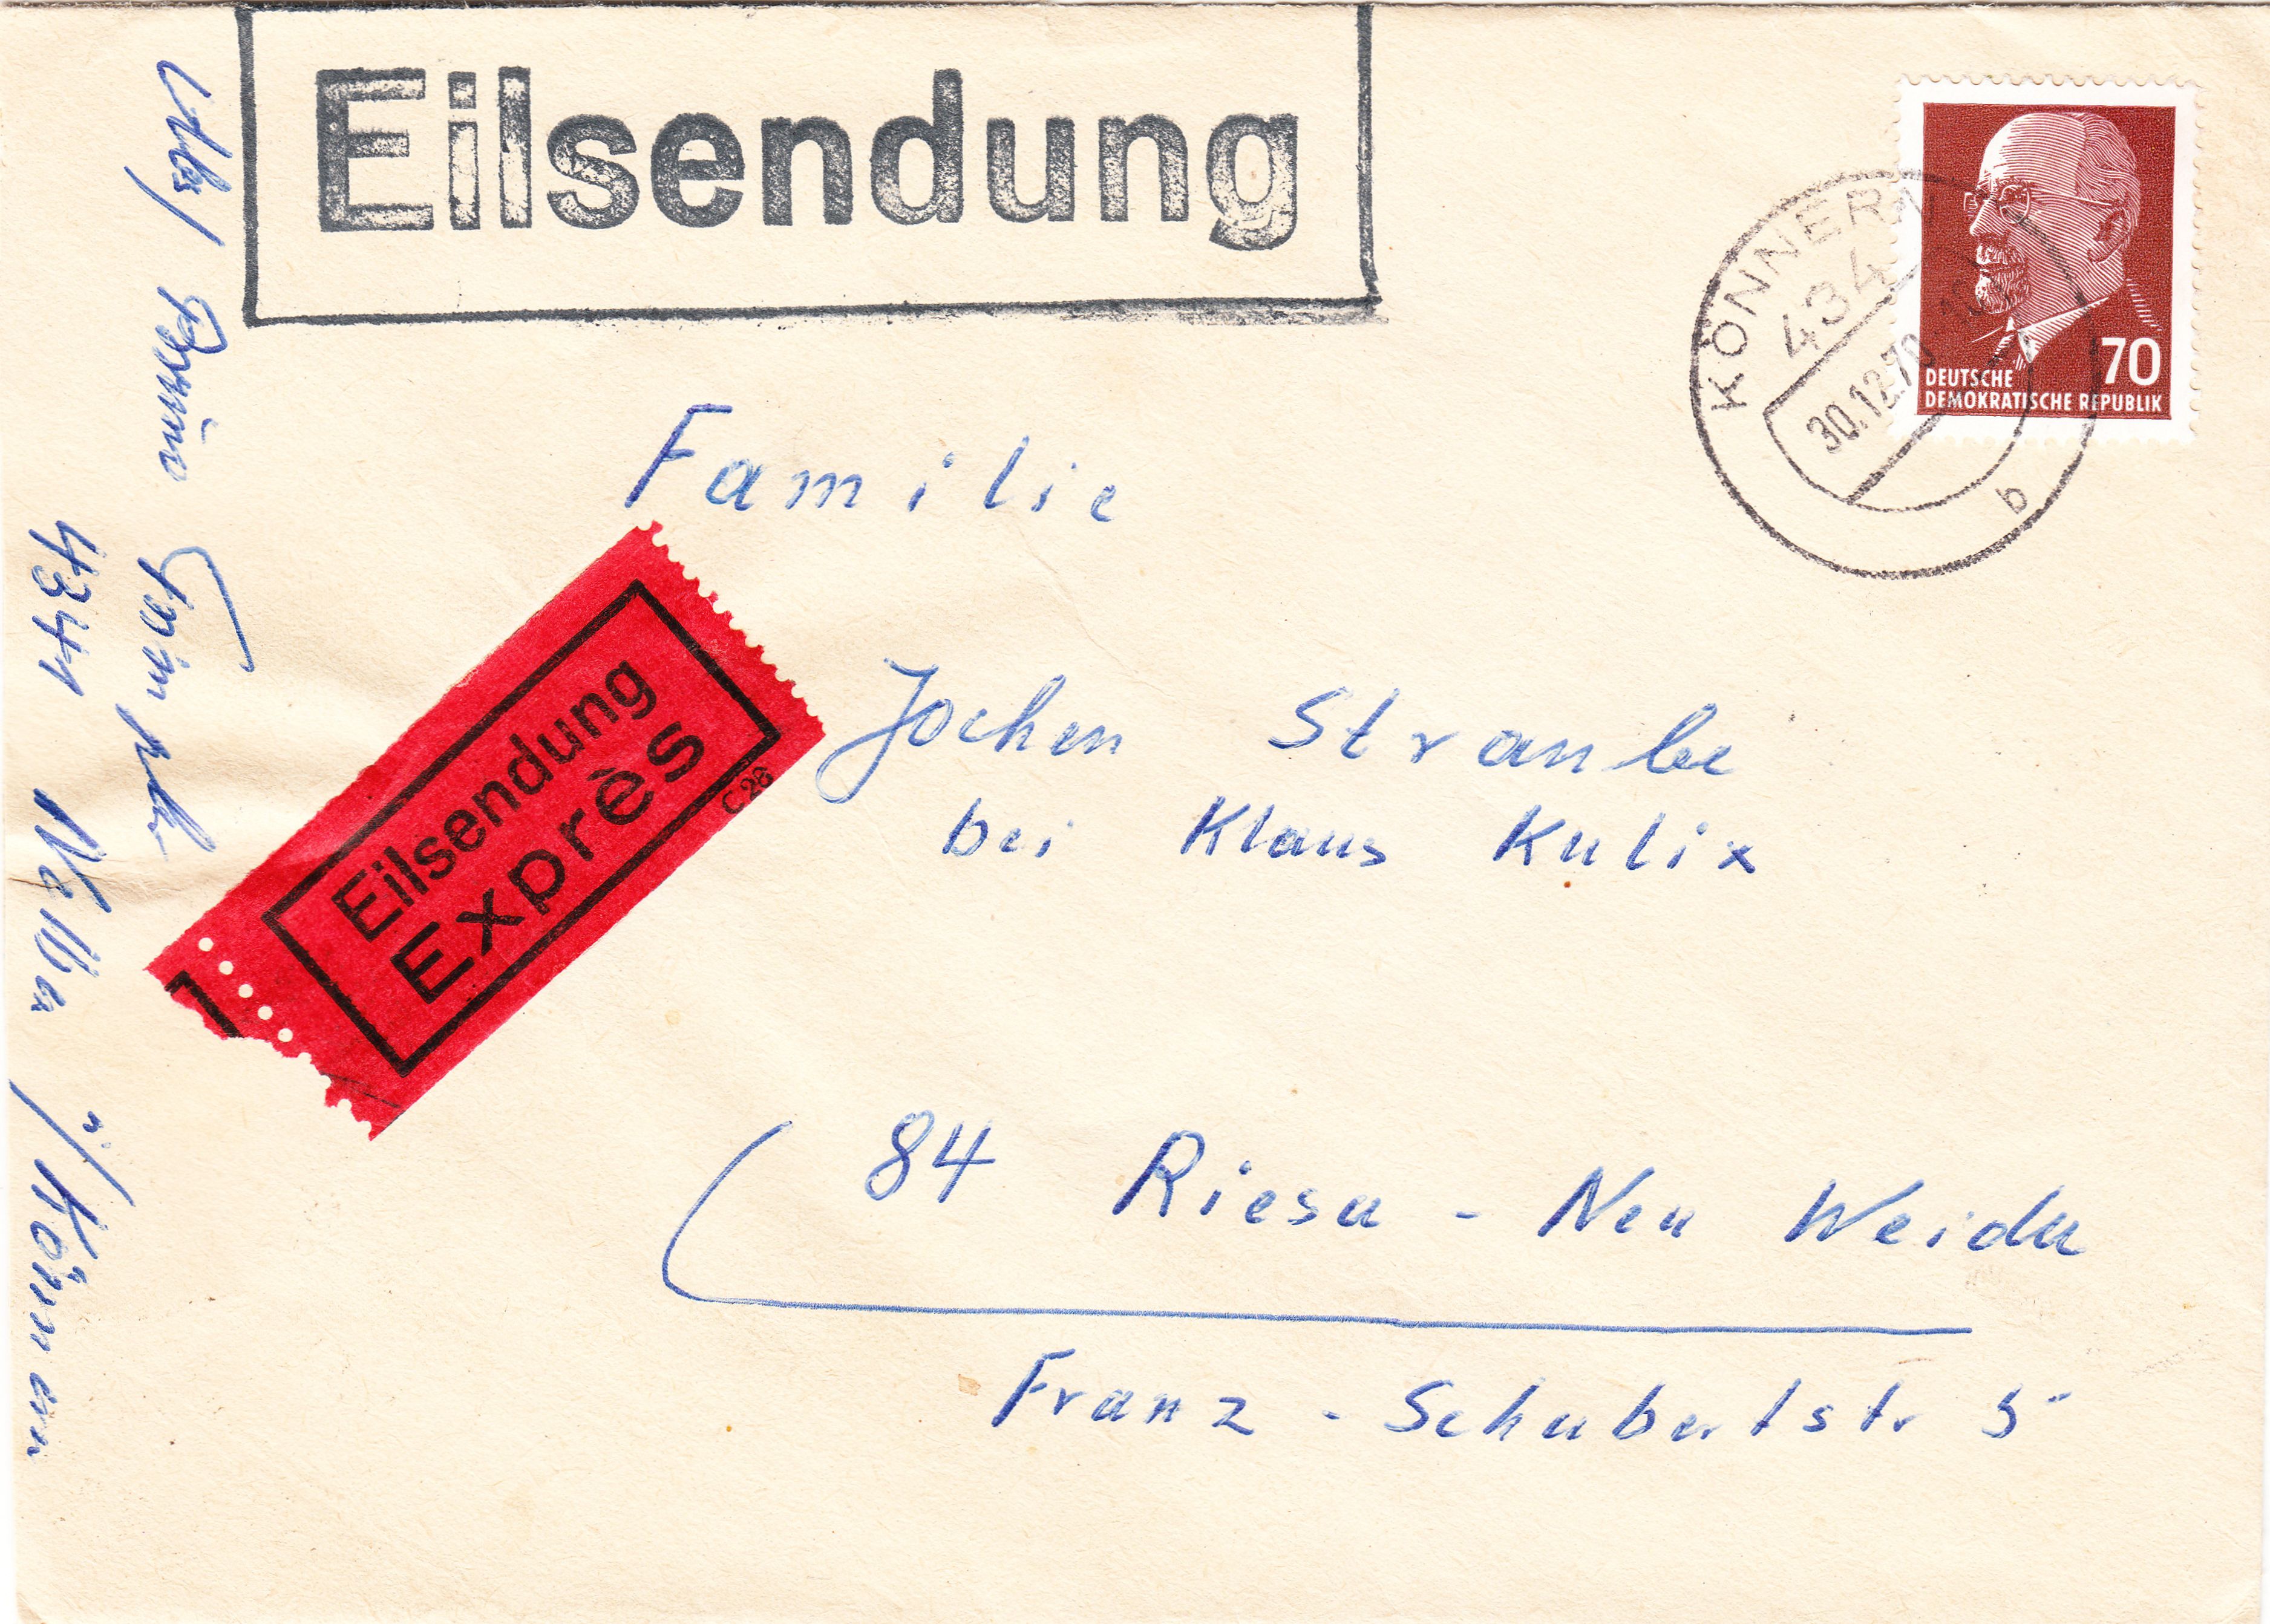 Eilsendung
70
DEUTSCHE
DEMOKRATISCHE REPUBLIK
KÖNNERN
434
30.12.70
b
Familie
Jochen Straube
bei Klaus Kulix
84 Riesa - Neu Weida
Franz - Schubertstr 5
Eilsendung
Exprès
C 28
Abs/ Bruno
4341
ü/Könnern